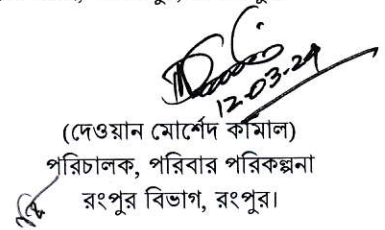 12-03-24
(দেওয়ান মোর্শেদ কামাল)
পরিচালক, পরিবার পরিকল্পনা
রংপুর বিভাগ, রংপুর।